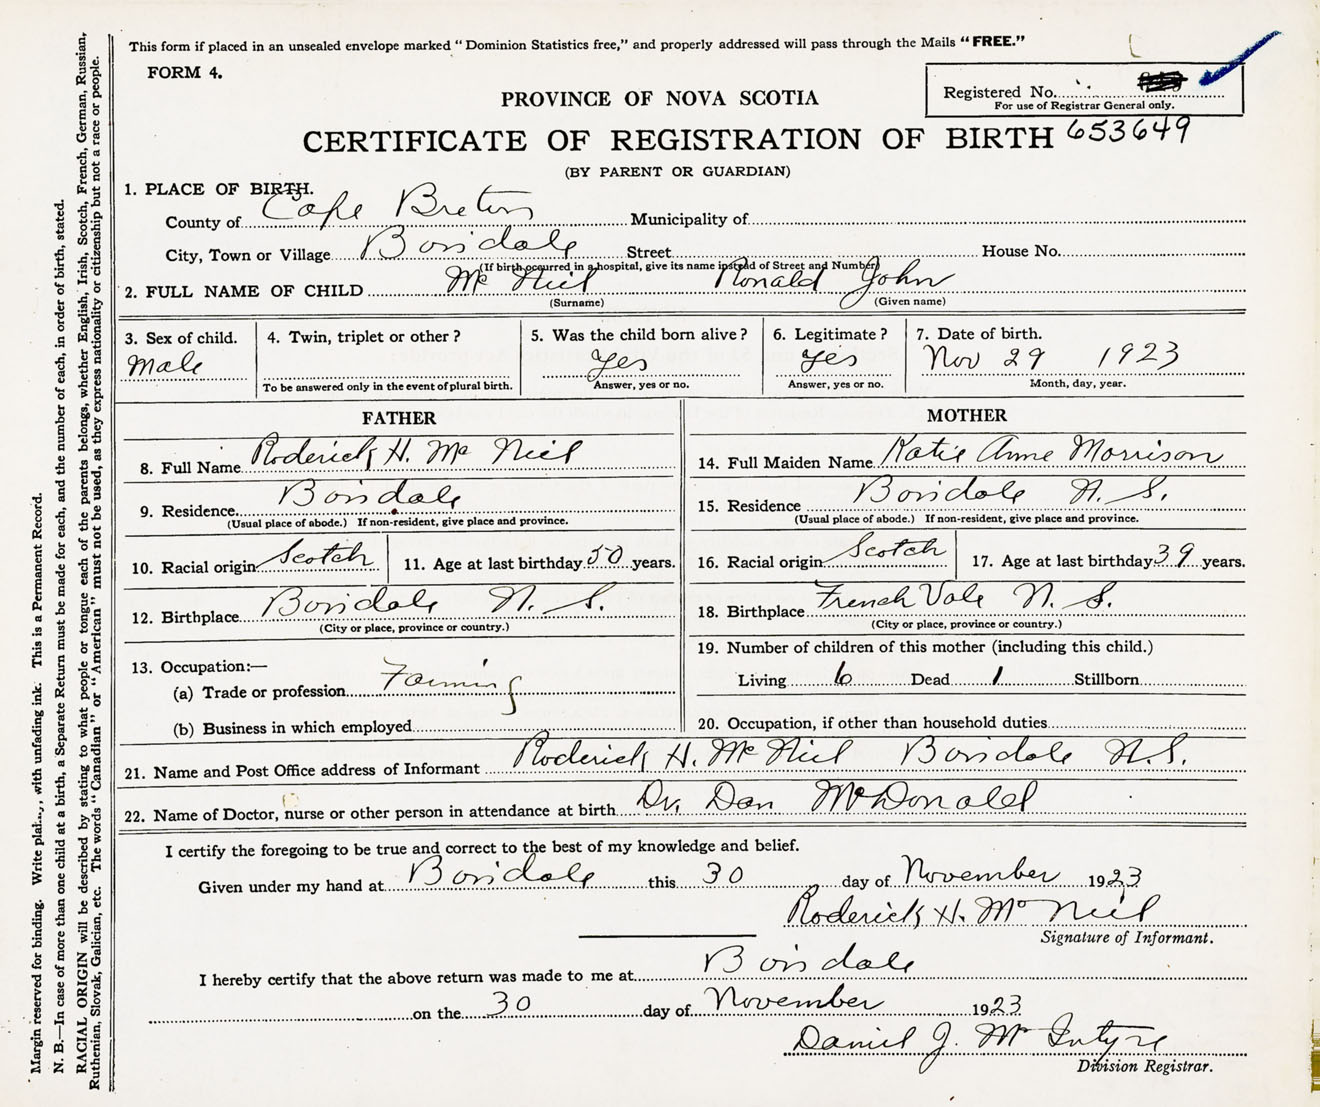 This form if placed in an unsealed envelope marked "Dominion Statistics free," and properly addressed will pass through the Mails "FREE."
FORM 4.
Registered No.
For use of Registrar General only.
PROVINCE OF NOVA SCOTIA
CERTIFICATE OF REGISTRATION OF BIRTH 653649
(BY PARENT OR GUARDIAN)
1. PLACE OF BIRTH.
County of Cape Breton Municipality of
City, Town or Village Boisdale Street House No.
(If birth occurred in a hospital, give its name instead of Street and Number)
2. FULL NAME OF CHILD Mc Neil Ronald John
(Surname) (Given name)
3. Sex of child. 4. Twin, triplet or other? 5. Was the child born alive? 6. Legitimate? 7. Date of birth.
Male Yes Yes Nov 29 1923
To be answered only in the event of plural birth. Answer, yes or no. Answer, yes or no. Month, day, year.
FATHER MOTHER
8. Full Name Roderick H. Mc Neil 14. Full Maiden Name Katie Anne Morrison
9. Residence Boisdale 15. Residence Boisdale N. S.
(Usual place of abode.) If non-resident, give place and province. (Usual place of abode.) If non-resident, give place and province.
10. Racial origin Scotch 11. Age at last birthday 50 years. 16. Racial origin Scotch 17. Age at last birthday 39 years.
12. Birthplace Boisdale N. S. 18. Birthplace French Vale N. S.
(City or place, province or country.) (City or place, province or country.)
13. Occupation:— 19. Number of children of this mother (including this child.)
(a) Trade or profession Farming Living 6 Dead 1 Stillborn
(b) Business in which employed 20. Occupation, if other than household duties
21. Name and Post Office address of Informant Roderick H. Mc Neil Boisdale N.S.
22. Name of Doctor, nurse or other person in attendance at birth Dr. Dan McDonald
I certify the foregoing to be true and correct to the best of my knowledge and belief.
Given under my hand at Boisdale this 30 day of November 1923
Roderick H. Mc Neil
Signature of Informant.
I hereby certify that the above return was made to me at Boisdale
on the 30 day of November 1923
Daniel J. Mc Intyre
Division Registrar.
Margin reserved for binding. Write with unfading ink. This is a Permanent Record.
N. B.—In case of more than one child at a birth, a Separate Return must be made for each, and the number of each, in order of birth, stated.
RACIAL ORIGIN will be described by stating to what people or tongue each of the parents belongs, whether English, Irish, Scotch, French, German, Russian,
Ruthenian, Slovak, Galician, etc. The words "Canadian" or "American" must not be used, as they express nationality or citizenship but not a race or people.